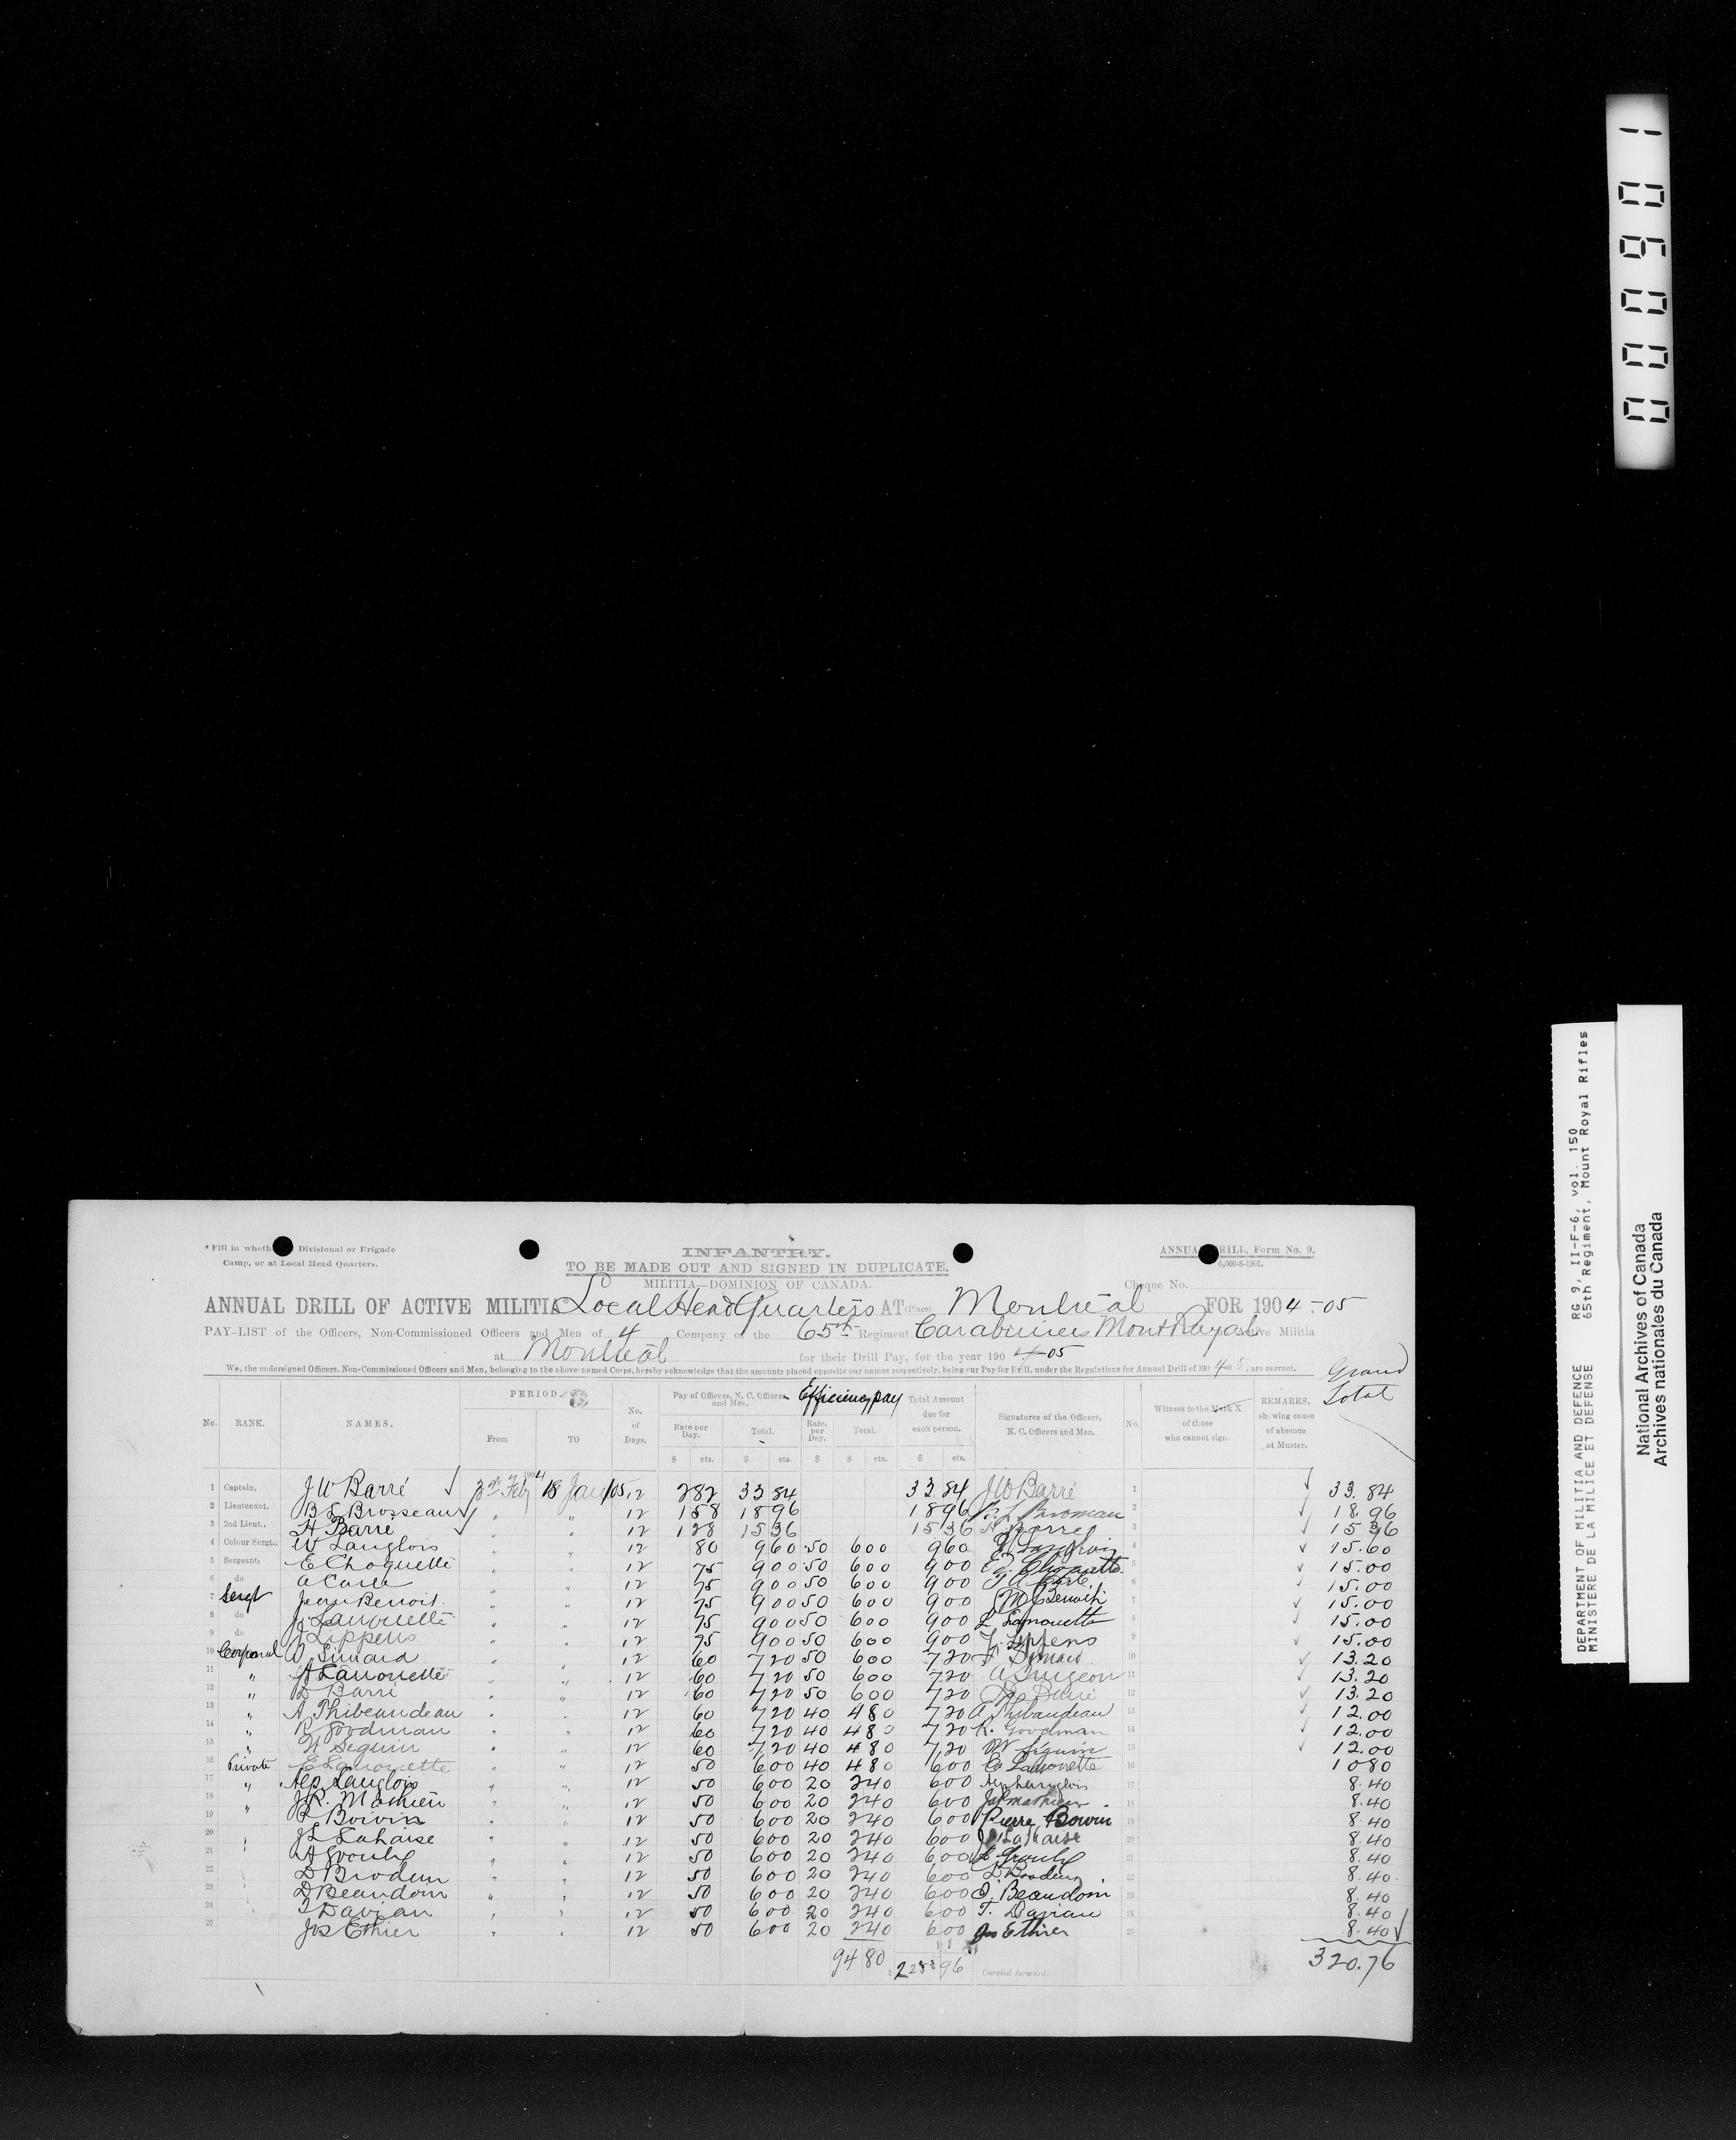 000901
DEPARTMENT OF MILITIA AND DEFENCE RG 9, II-F-6, vol. 150
MINISTERE DE LA MILICE ET DEFENSE 65th Regiment, Mount Royal Rifles
National Archives of Canada
Archives nationales du Canada
* Fill in wheth Divisional or Brigade
Camp, or at Local Head Quarters.
INFANTRY.
TO BE MADE OUT AND SIGNED IN DUPLICATE.
MILITIA—DOMINION OF CANADA.
ANNUA RILL, Form No. 9.
6,000-8-1901.
Cheque No.
ANNUAL DRILL OF ACTIVE MILITIA Local Head Quarters AT (Place) Montreal FOR 1904-05
PAY-LIST of the Officers, Non-Commissioned Officers and Men of 4 Company of the 65th Regiment Carabiniers Mont Royal Militia
at Montreal for their Drill Pay, for the year 1904-05
We, the undersigned Officers, Non-Commissioned Officers and Men, belonging to the above-named Corps, hereby acknowledge that the amounts placed opposite our names respectively, being our Pay for Drill, under the Regulations for Annual Drill of 1904-05, are correct.
Grand Total
No. RANK. NAMES. PERIOD. From TO No. of Days. Pay of Officers, N. C. Officers and Men. Rate per Day. Total. Efficiency pay Rate per Day. Total. Total Amount due for each person. Signatures of the Officers, N. C. Officers and Men. No. Witness to the Mark X of those who cannot sign. REMARKS, showing cause of absence at Muster.
$ cts. $ cts. $ $ cts. $ cts.
1 Captain, J W Barré Feby 1904 18 Jany 05 12 282 33 84 33 84 J W Barré 1 33.84
2 Lieutenant, B L Brosseau " " 12 158 18 96 18 96 2 18.96
3 2nd Lieut., H Barré " " 12 128 15 36 15 36 H Barré 3 15 36
4 Colour Sergt., W Langlois " " 12 80 9 60 50 6 00 9 60 4 15.60
5 Sergeant, E Choquette " " 12 75 9 00 50 6 00 9 00 E. Choquette 5 15.00
6 do " " 12 75 9 00 50 6 00 9 00 6 15.00
7 Sergt Benoit " " 12 75 9 00 50 6 00 9 00 Benoit 7 15.00
8 do J Lamouette " " 12 75 9 00 50 6 00 9 00 L Lamouette 8 15.00
9 do J Lippens " " 12 75 9 00 50 6 00 9 00 Lippens 9 15.00
10 Corporal Simard " " 12 60 7 20 50 6 00 7 20 Simard 10 13.20
11 " A Lamouette " " 12 60 7 20 50 6 00 7 20 11 13.20
12 " D Barré " " 12 60 7 20 50 6 00 7 20 Barré 12 13.20
13 " A Thibeaudeau " " 12 60 7 20 40 4 80 7 20 A Thibaudeau 13 12.00
14 " R Goodman " " 12 60 7 20 40 4 80 7 20 R. Goodman 14 12.00
15 " W Seguin " " 12 60 7 20 40 4 80 7 20 W Séguin 15 12.00
16 Private E Lamouette " " 12 50 6 00 40 4 80 6 00 E Lamouette 16 10 80
17 " Alp Langlois " " 12 50 6 00 20 2 40 6 00 Alp Langlois 17 8.40
18 J.R. Mathieu " " 12 50 6 00 20 2 40 6 00 Mathieu 18 8.40
19 " P Boivin " " 12 50 6 00 20 2 40 6 00 Pierre Boivin 19 8.40
20 J L Lahaise " " 12 50 6 00 20 2 40 6 00 Lahaise 20 8.40
21 A Groulx " " 12 50 6 00 20 2 40 6 00 Groulx 21 8.40
22 D Brodeur " " 12 50 6 00 20 2 40 6 00 D Brodeur 22 8.40
23 D Beaudoin " " 12 50 6 00 20 2 40 6 00 D. Beaudoin 23 8.40
24 T Davian " " 12 50 6 00 20 2 40 6 00 T. Davian 24 8.40
25 Jos Ethier " " 12 50 6 00 20 2 40 6 00 Jos Ethier 25 8.40
94 80 228 96 Carried forward. 320.76